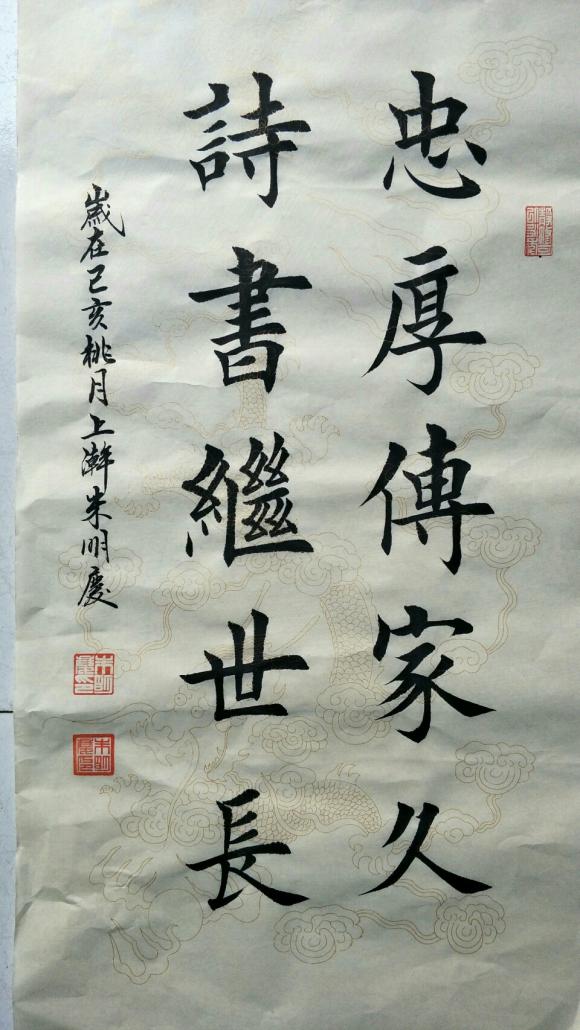 忠厚傳家久
詩書繼世長
歲在己亥桃月上澣朱明慶